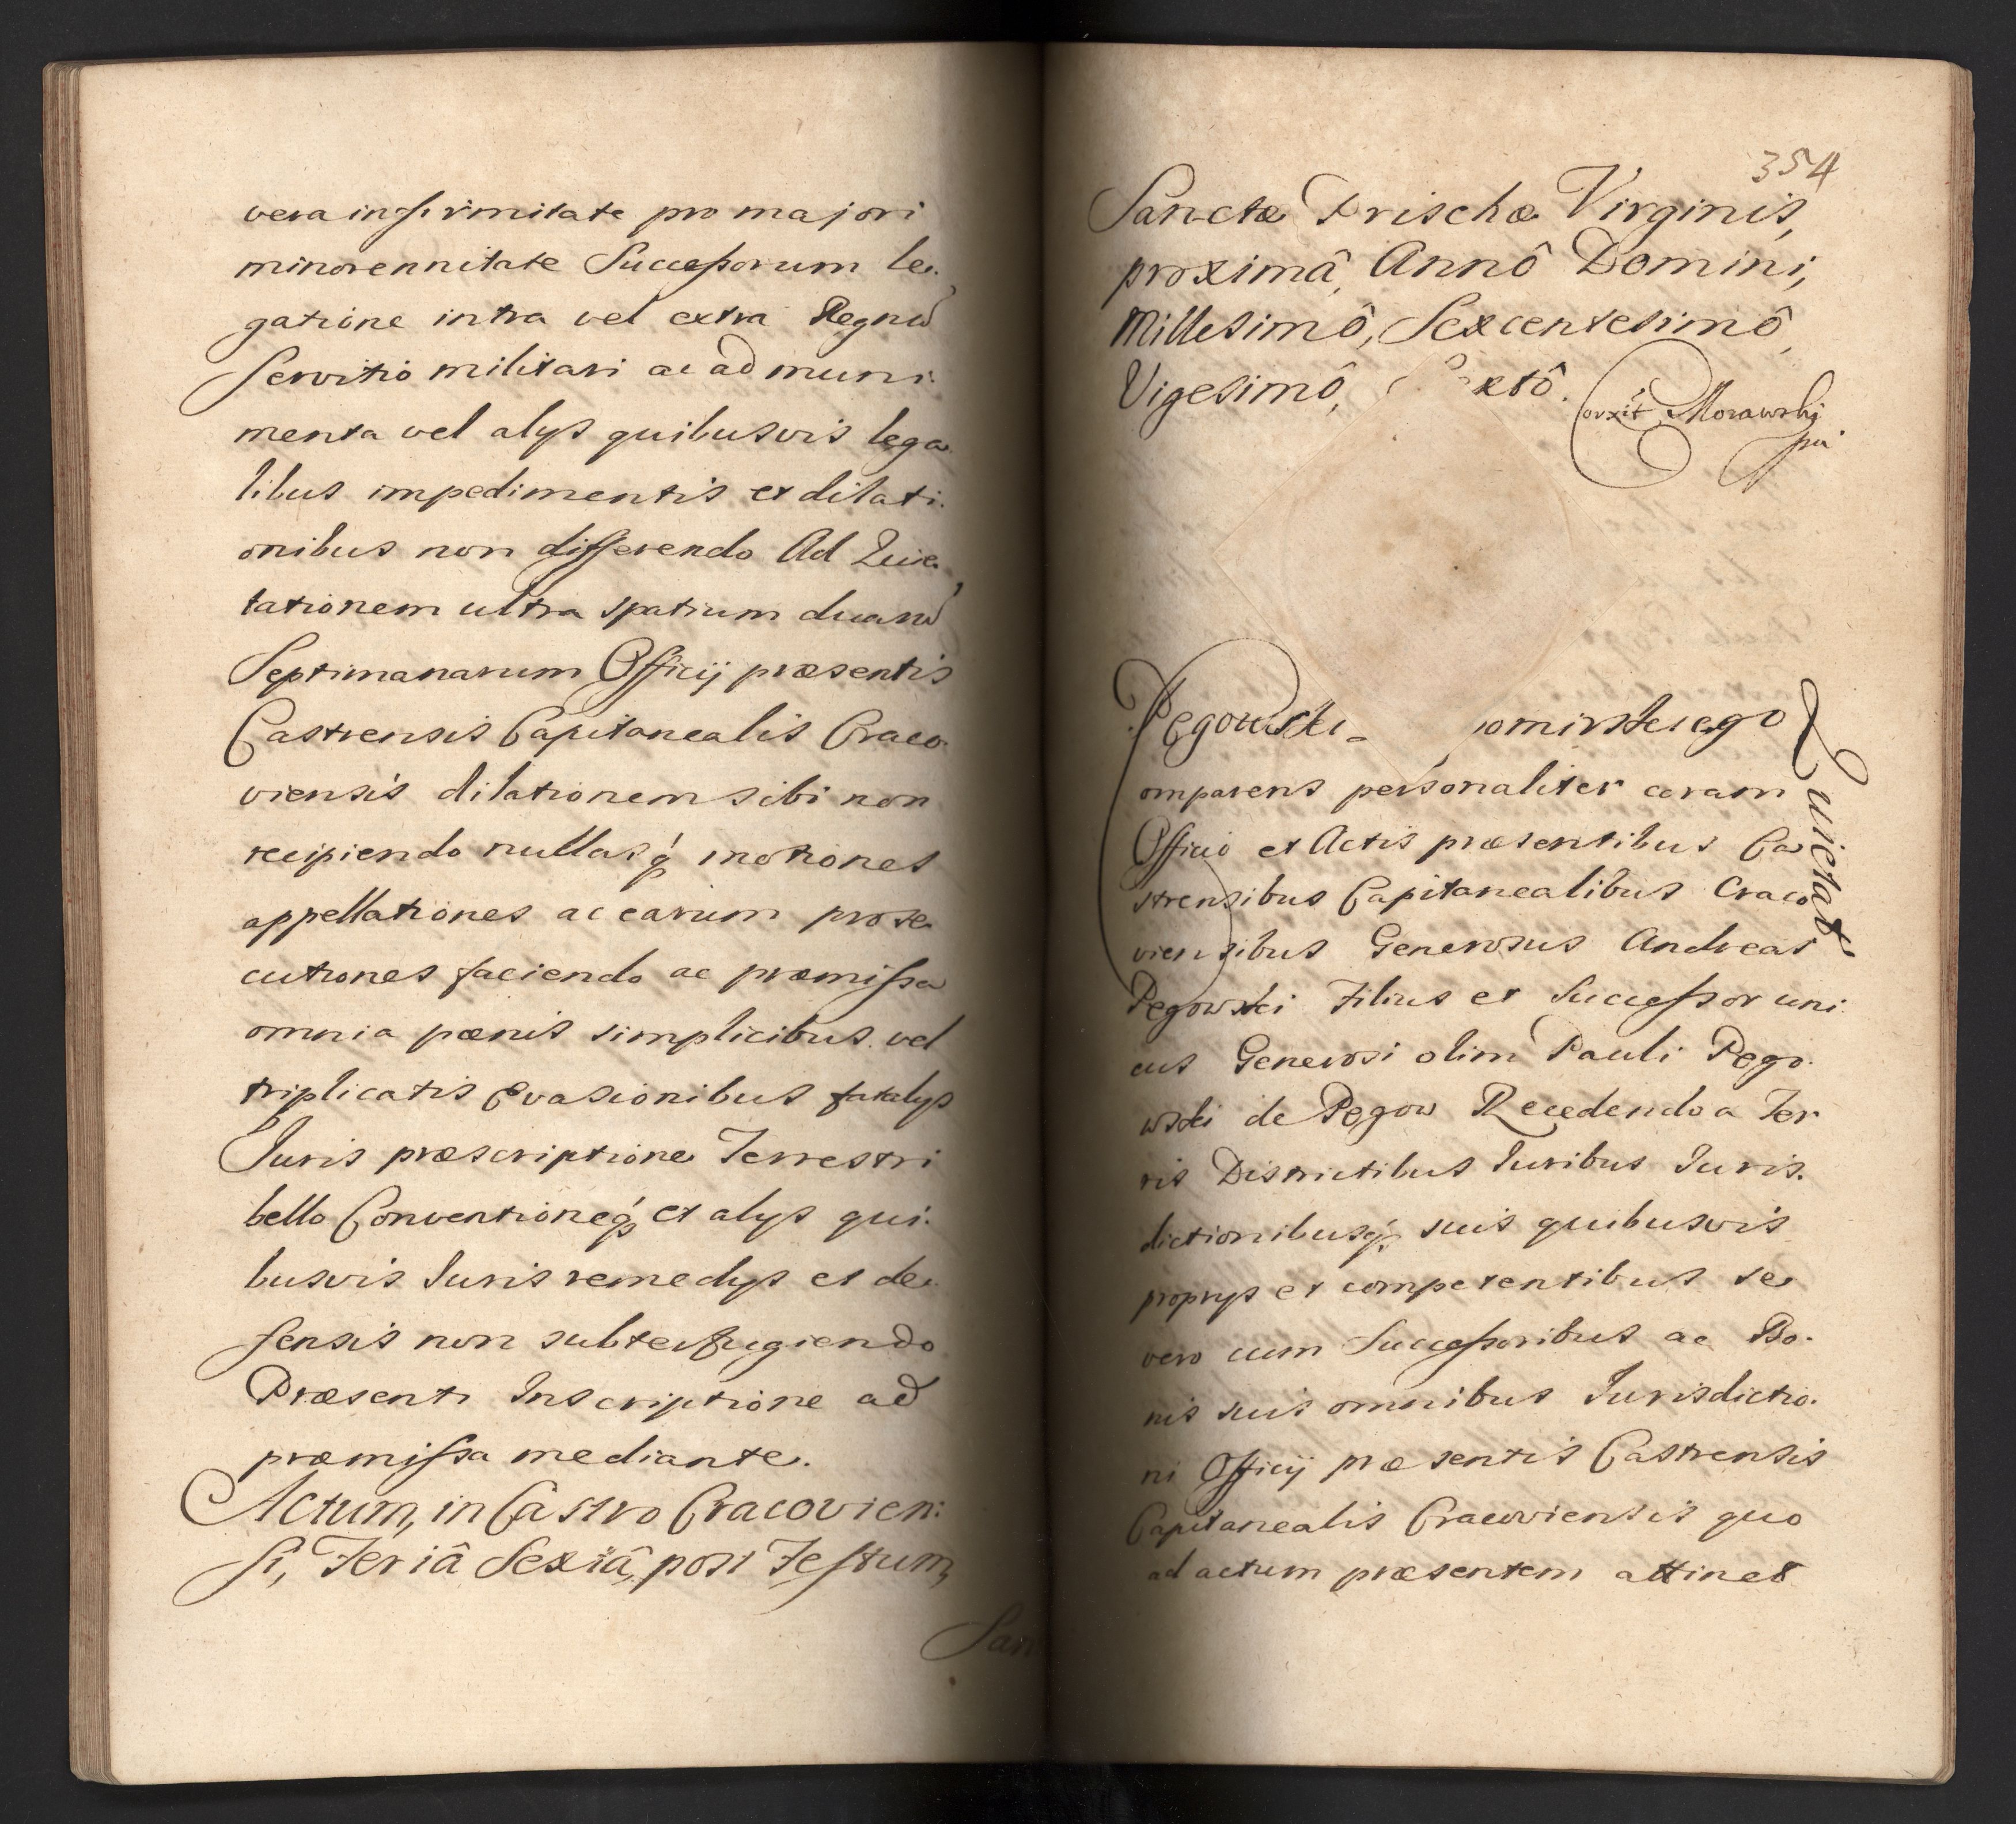 vera infirmitate pro majori
minorennitate Successorum le.
gatione intra vel extra Regnũ
servitio militari ac ad muni.
menta vel alijs quibusvis lega
libus impedimentis et dilati.
onibus non differendo Ad Quie
tationem ultra spatium duarũ
Septimanarum Officij præsentis
Castrensis Capitanealis Craco.
viensis dilationem sibi non
recipiendo nullasq́ motiones
appellationes ac earum prose
cutiones faciendo ac præmissa
omnia pænis simplicibus vel
triplicatis evasionibus fatalijs
Juris præscriptione Terrestri
bello Conventioneq́ et alijs qui.
busvis Juris remedijs et de.
fensis non subterfugiendo
Præsenti Inscriptione ad
præmissa mediante.
Actum, in Castro Cracovien:
si, Feriâ Sextâ, post Festum,
San
354
Sanctæ Prischæ Virginis,
proximâ, Annô Domini,
Millesimô, Sexcentesimô,
Vigesimô, extô.
Corxit Morawski
pu
Pęgowski omirskiego
Quietat
omparens personaliter coram
Officio et Actis præsentibus Ca
strensibus Capitanealibus Craco
viensibus Generosus Andreas
Pęgowski Filius et Successor uni.
cus Generosi olim Pauli Pęgo.
wski de Pęgow Recedendo a Ter
ris Districtibus Juribus Juris.
dictionibusq́ suis quibusvis
proprijs et competentibus se
vero cum Successoribus ac Bo.
nis suis omnibus Jurisdictio.
ni Officij præsentis Castrensis
Capitanealis Cracoviensis quo
ad actum præsentem attinet